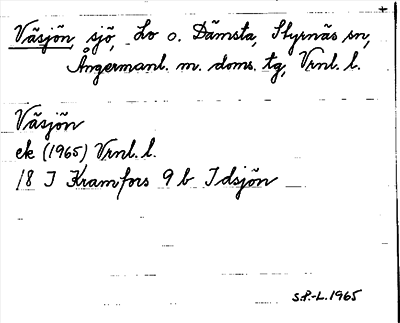 Väsjön, sjö, Lo o. Dämsta, Styrnäs sn,
Ångermanl. m. doms. tg, Vrnl. l.
Väsjön
ek (1965) Vrnl. l.
18 I Kramfors 9 b Idsjön
S.P.-L. 1965